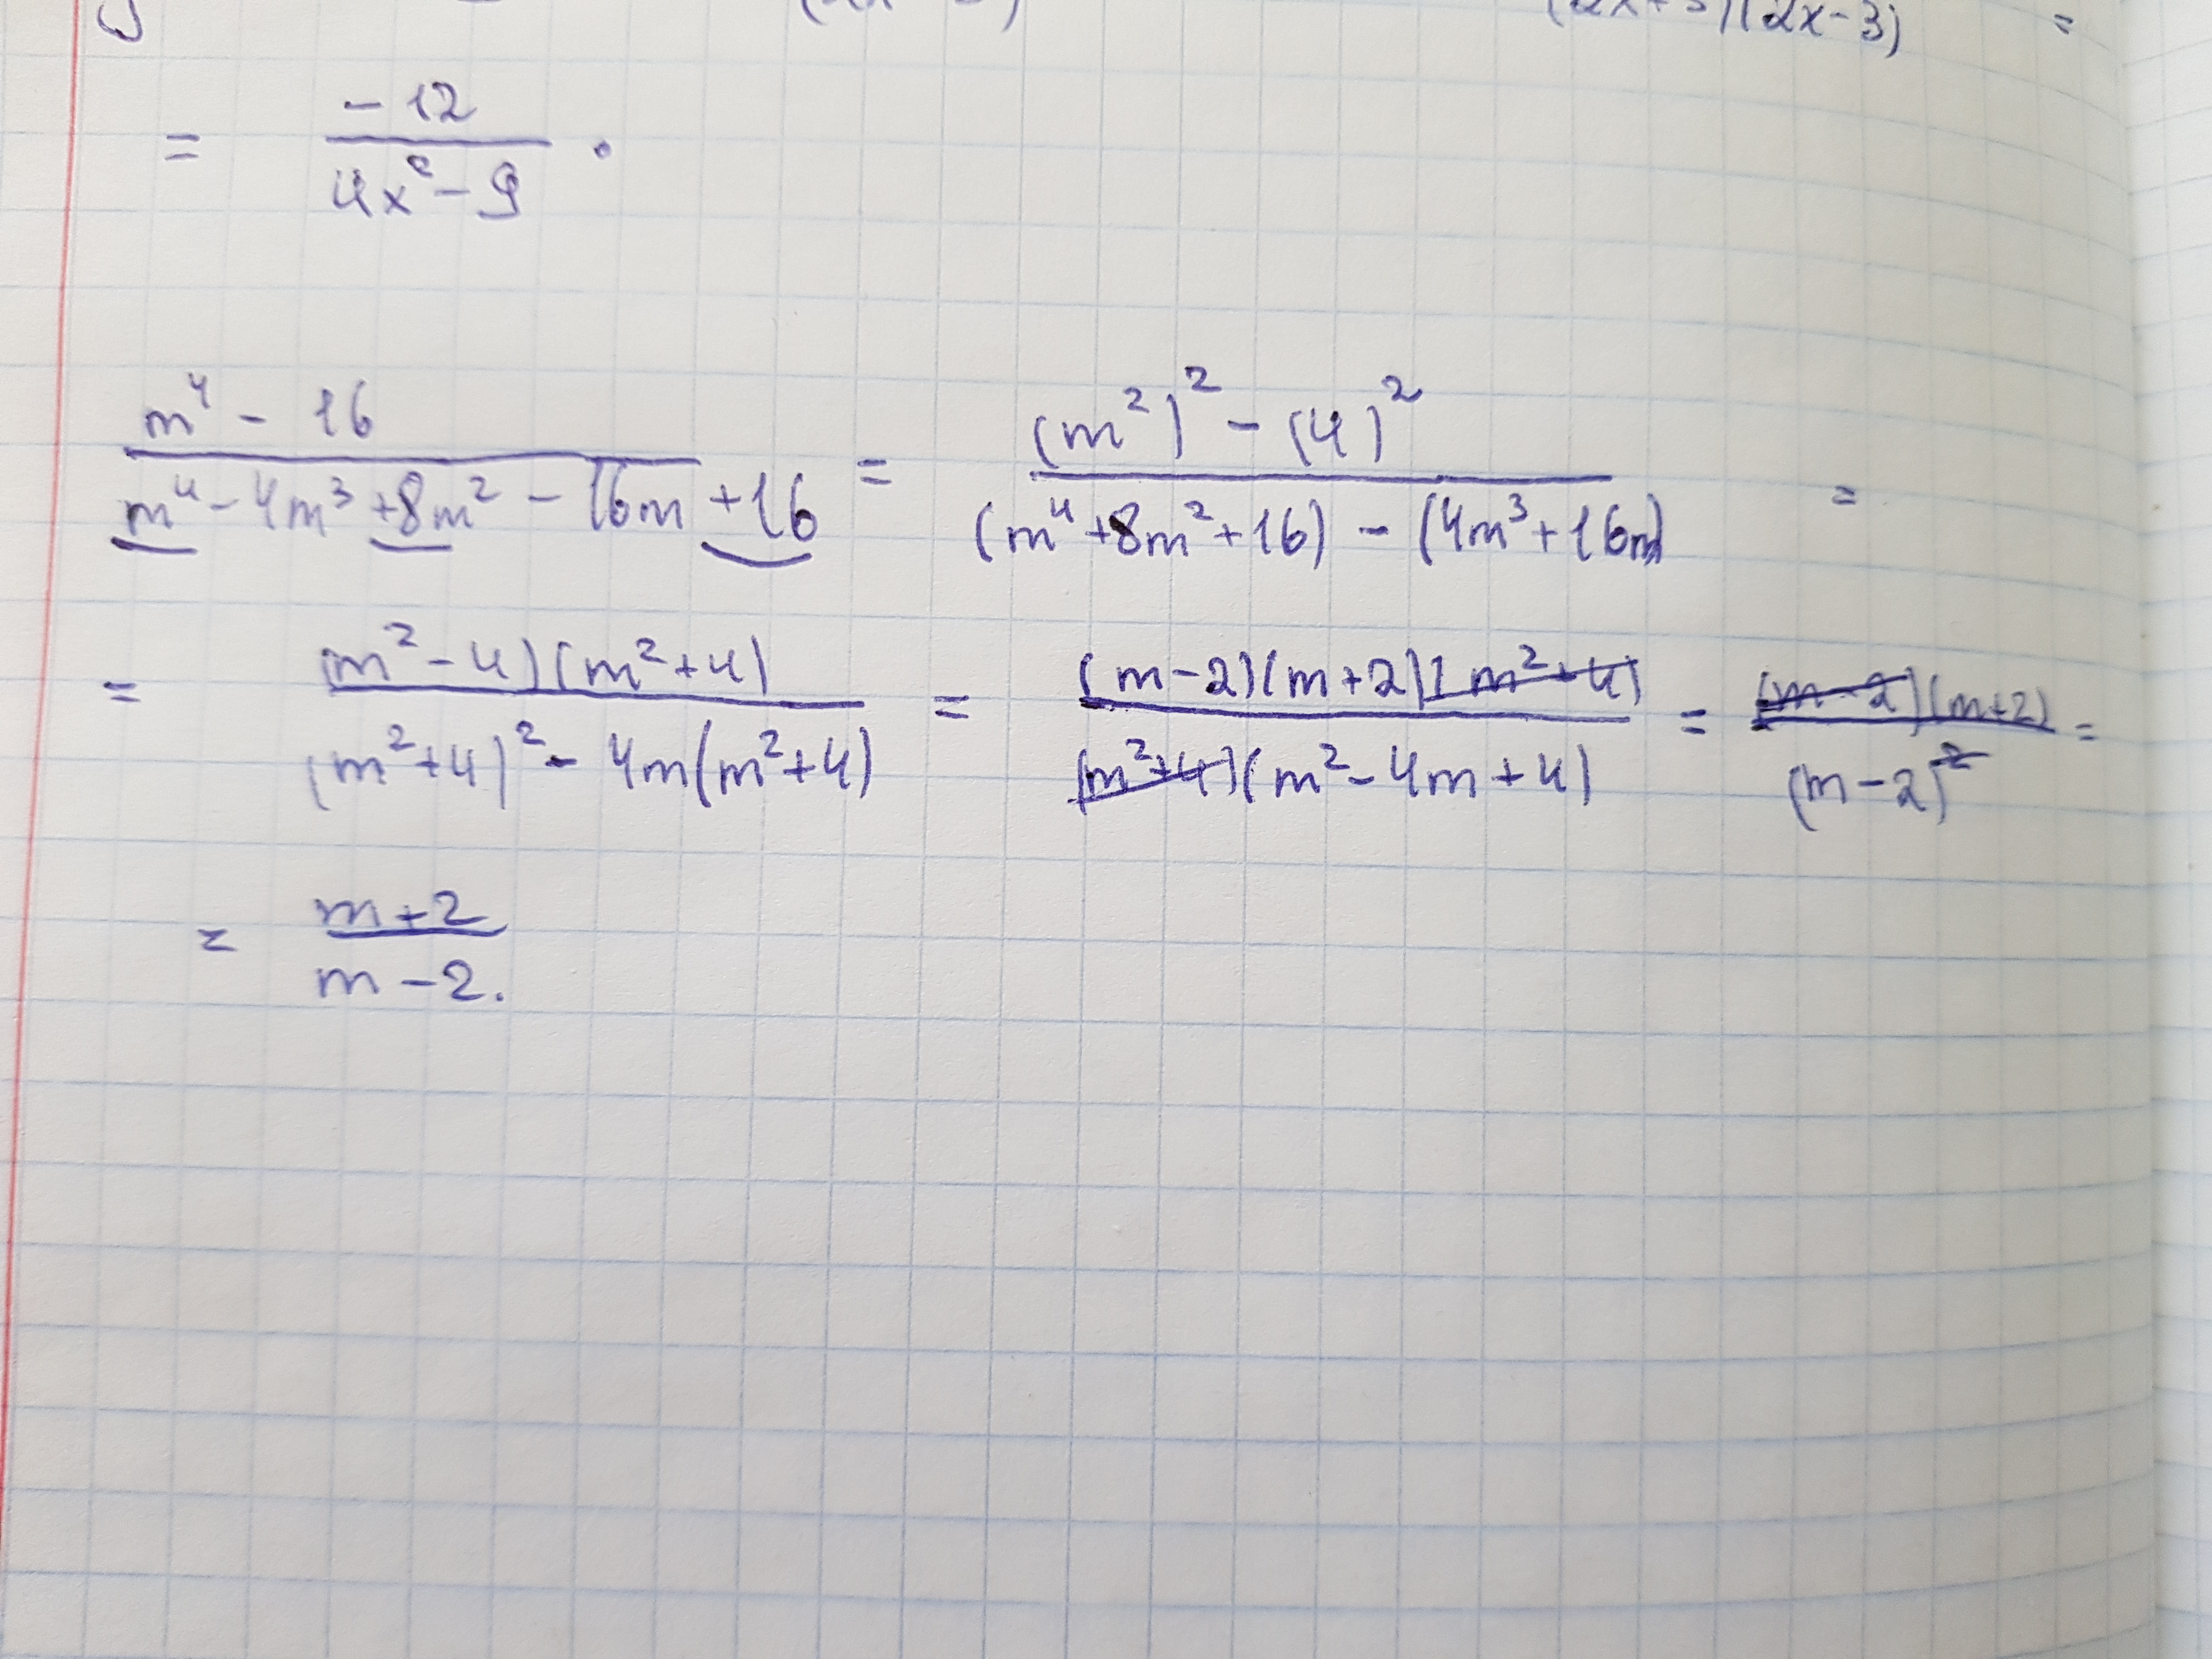 (2x+3)(2x-3) =
= -12 / 4x² - 9 .
m⁴ - 16 / m⁴ - 4m³ + 8m² - 16m + 16 = (m²)² - (4)² / (m⁴ + 8m² + 16) - (4m³ + 16m) =
= (m² - 4)(m² + 4) / (m² + 4)² - 4m(m² + 4) = (m-2)(m+2)(m²+4) / (m²+4)(m² - 4m + 4) = (m-2)(m+2) / (m-2)² =
= m+2 / m-2.